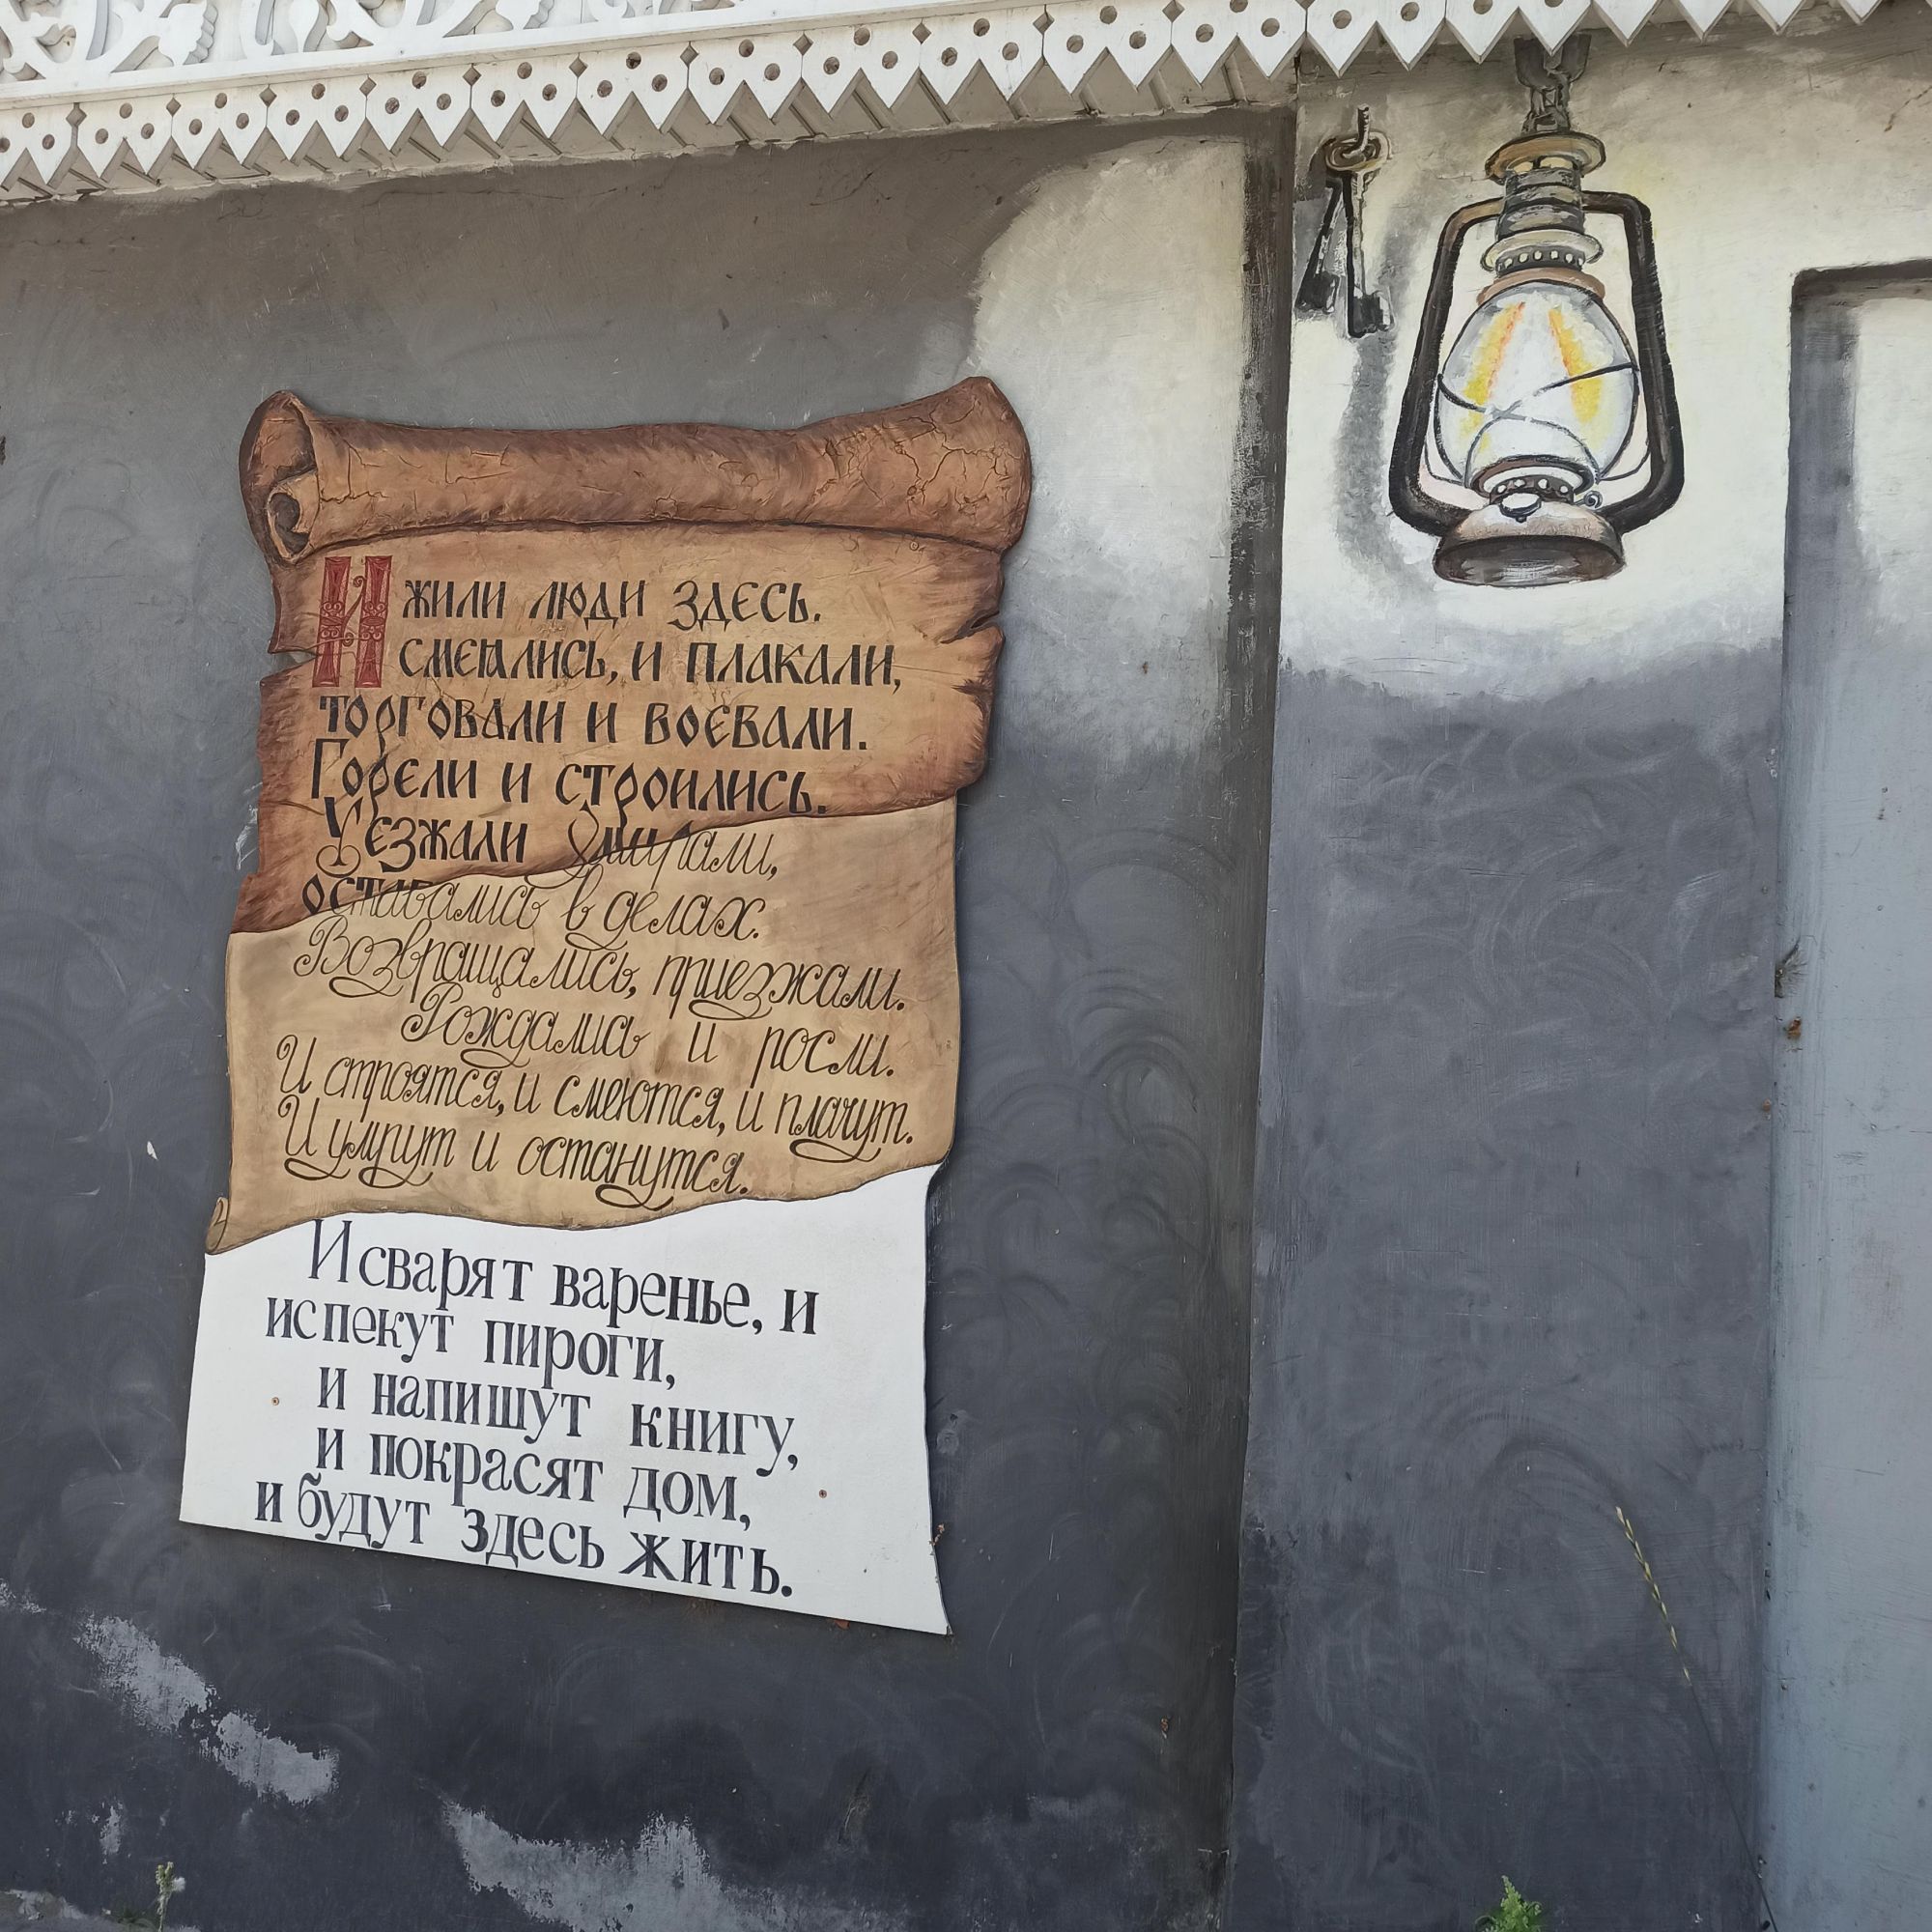 И жили люди здесь.
смеялись, и плакали,
торговали и воевали.
Горели и строились.
Уезжали Умирали,
оставались в делах.
Возвращались, приезжали.
Рождались и росли.
И строятся, и смеются, и плачут.
И умрут и останутся.
И сварят варенье, и
испекут пироги,
и напишут книгу,
и покрасят дом,
и будут здесь жить.